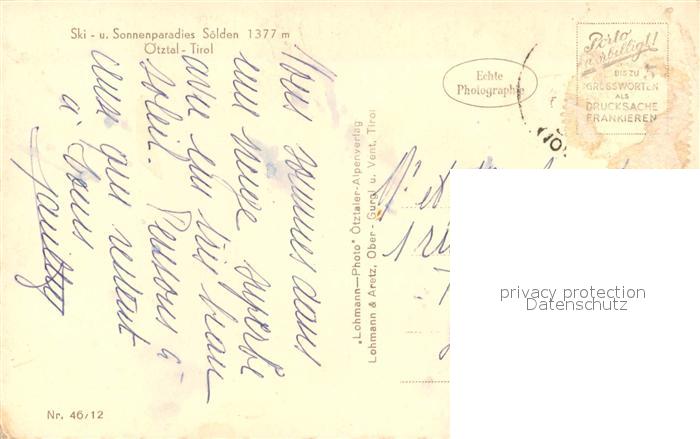 Ski - u. Sonnenparadies Sölden 1377 m
Ötztal - Tirol
Nous sommes dans
une neige superbe
avec un très beau
soleil. Pensons à
ceux qui restent
à
Nr. 46/12
„Lohmann—Photo" Ötztaler-Alpenverlag
Lohmann & Aretz, Ober - Gurgl u. Vent, Tirol
Echte
Photographie
Porto
verbilligt!
BIS ZU
GRUSSWORTEN
ALS
DRUCKSACHE
FRANKIEREN
M et
privacy protection
Datenschutz